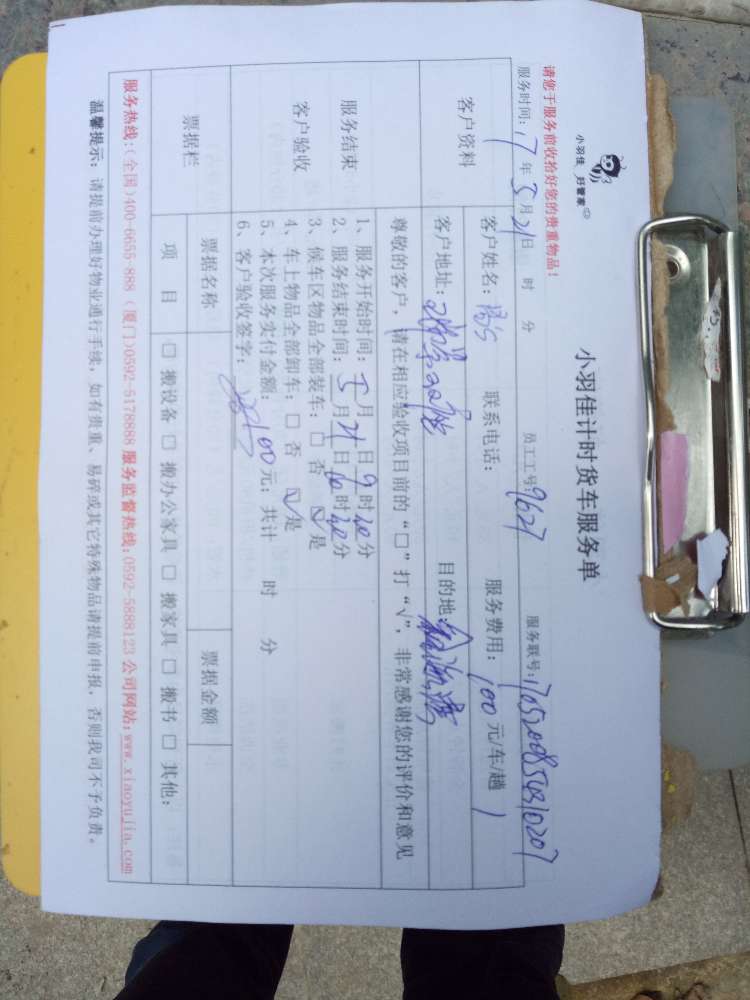 小羽佳 好管家
小羽佳计时货车服务单
请您于服务前收拾好您的贵重物品！
服务时间：17年5月21日 时 分 员工工号：9627 服务联号：
客户资料
客户姓名： 联系电话： 服务费用：100元/车/趟 1
客户地址： 目的地：
尊敬的客户，请在相应验收项目前的“□”打“√”，非常感谢您的评价和意见
服务结束
客户验收
1、服务开始时间：5月21日9时20分
2、服务结束时间：5月21日10时20分
3、候车区物品全部装车：□ 否 ☑ 是
4、车上物品全部卸车：□ 否 ☑ 是
5、本次服务实付金额：100元；共计 时 分
6、客户验收签字：
票据栏
票据名称 票据金额
项目 □ 搬设备 □ 搬办公家具 □ 搬家具 □ 搬书 □ 其他：
服务热线：（全国）400-6655-888（厦门）0592-5178888 服务监督热线：0592-5888123 公司网站：www.xiaoyujia.com
温馨提示：请提前办理好物业通行手续，如有贵重、易碎或其它特殊物品请提前申报，否则我司不予负责。